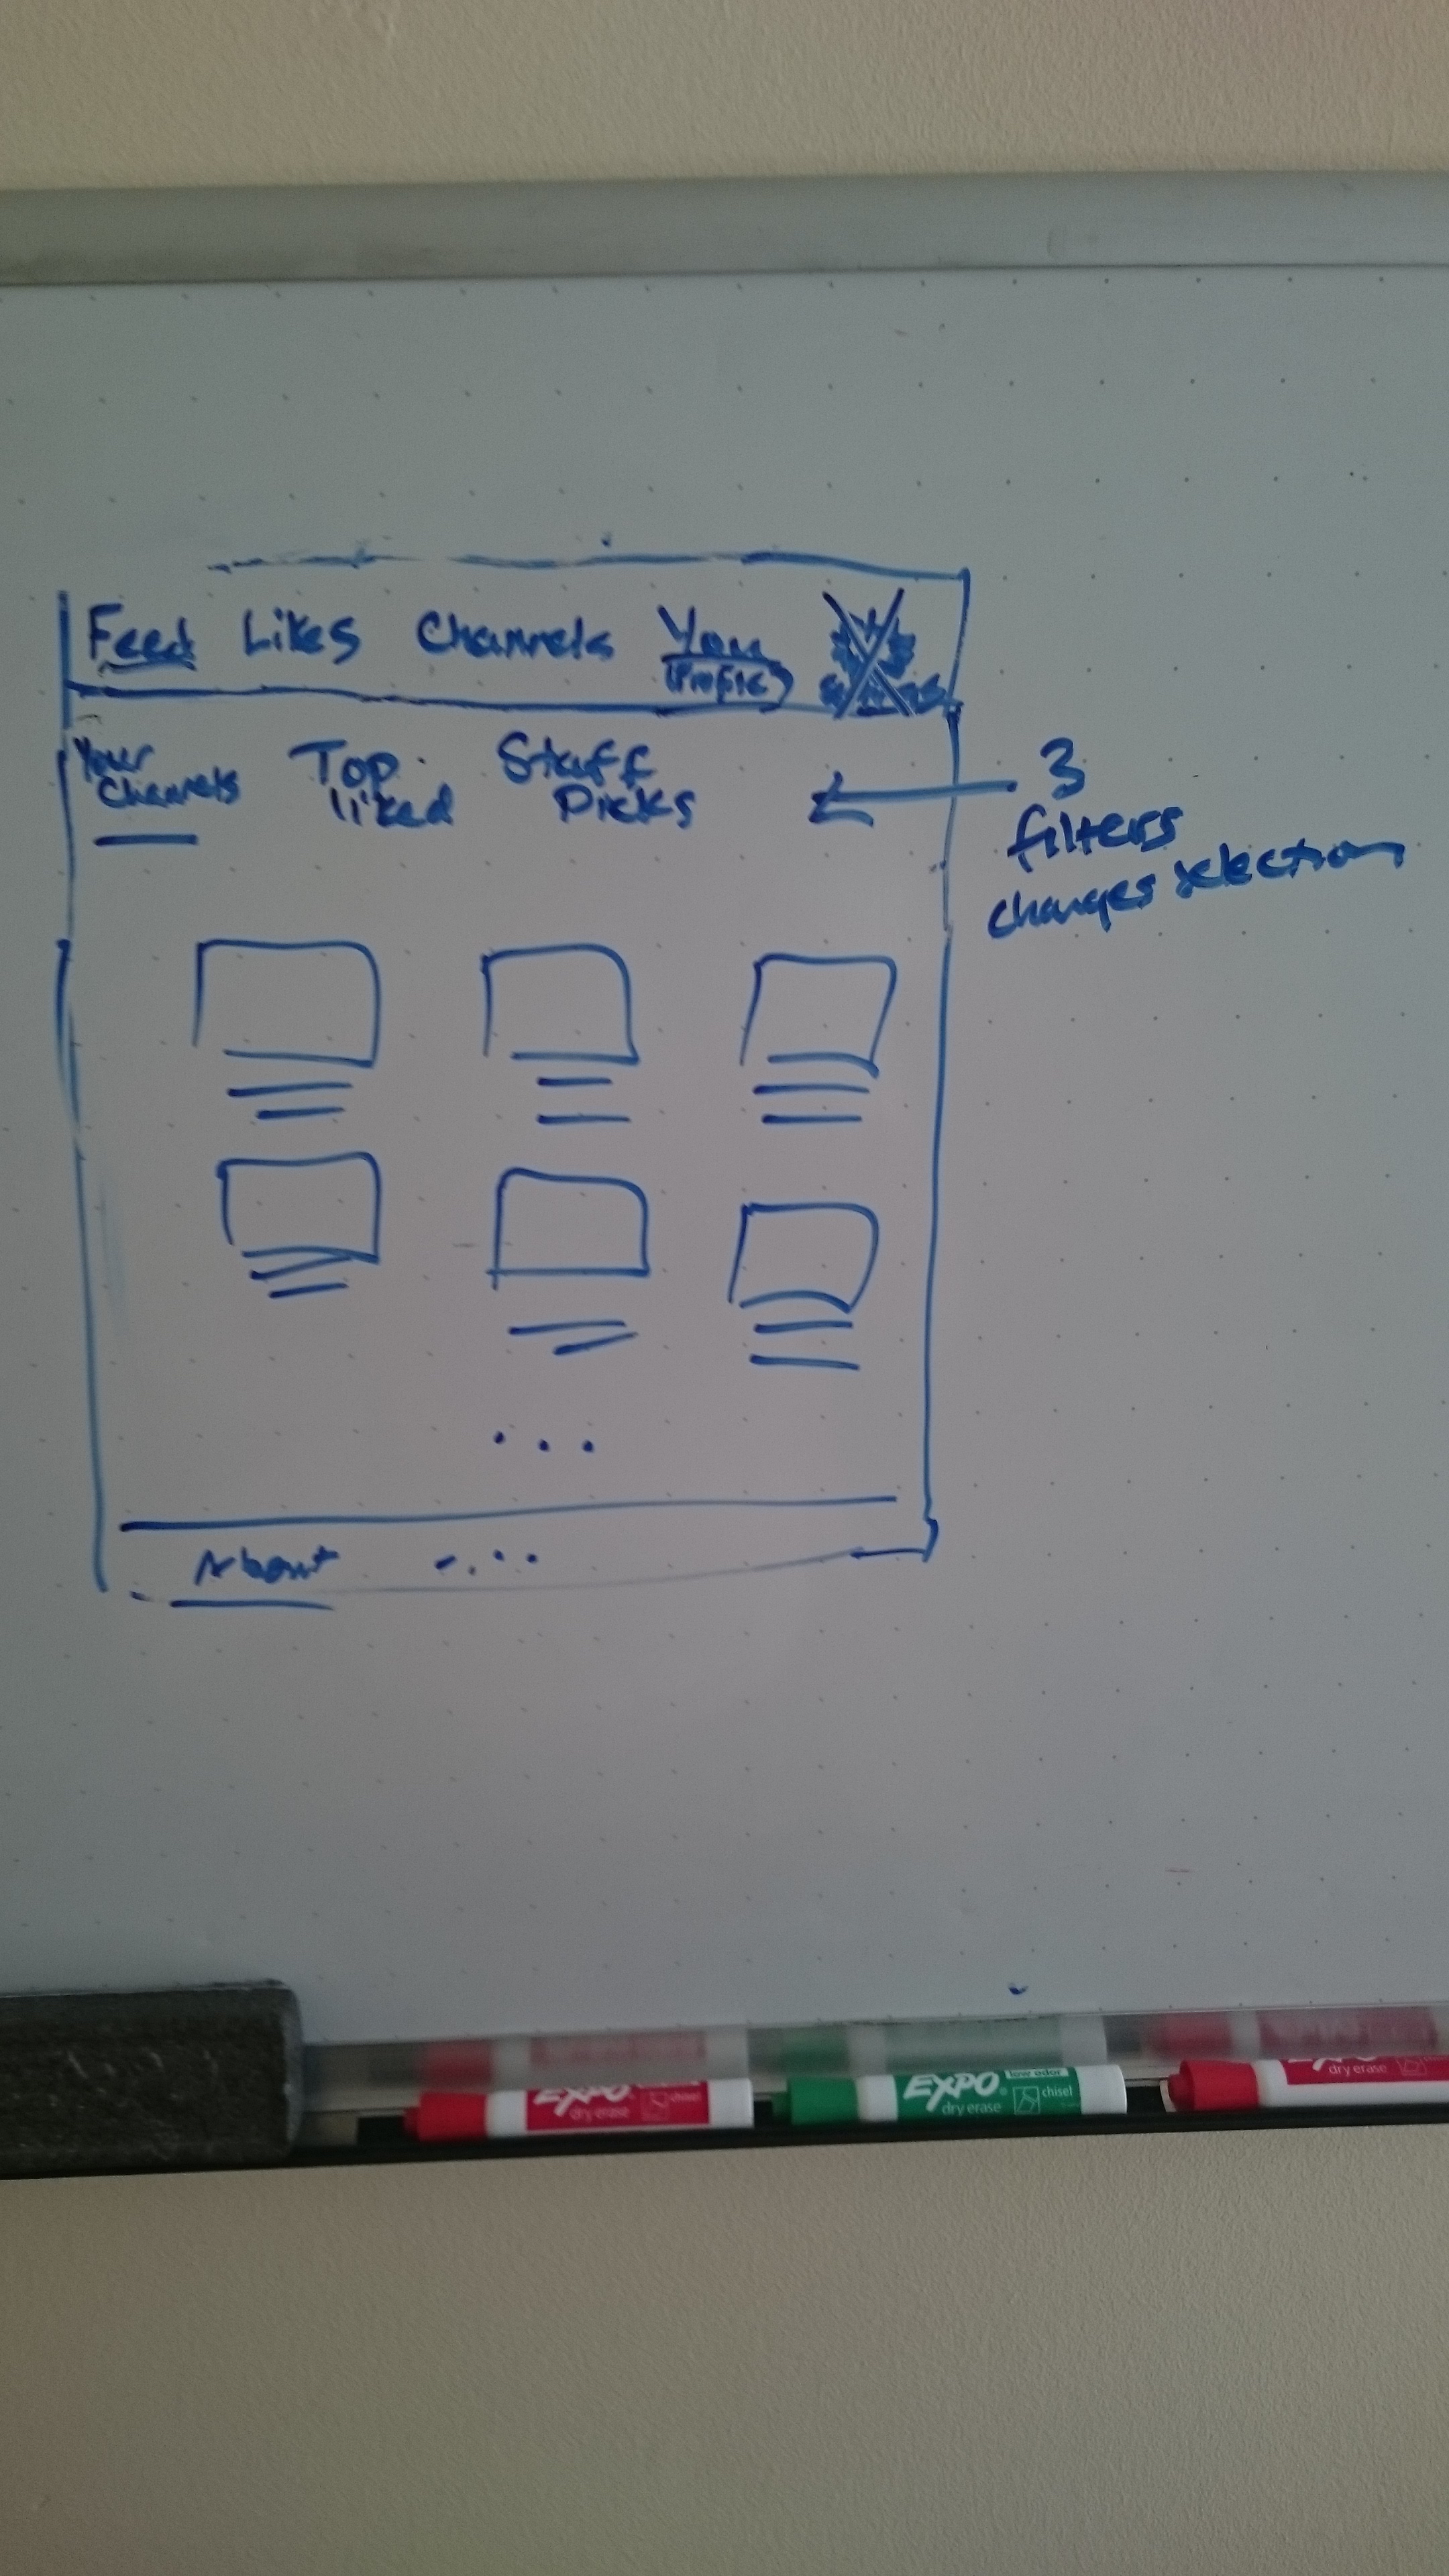 Feed Likes Channels You
(Profile)
Your Top Staff
Channels liked Picks
3
filters
changes selection
. . .
About ....
EXPO
dry erase
chisel
EXPO
low odor
dry erase
chisel
dry erase